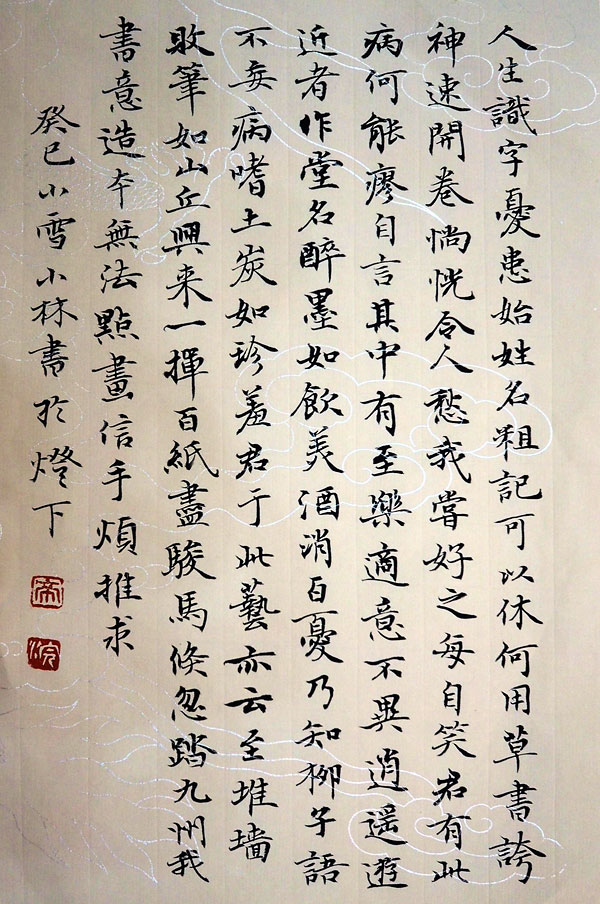 人生識字憂患始姓名粗記可以休何用草書誇
神速開卷惝恍令人愁我嘗好之每自笑君有此
病何能瘳自言其中有至樂適意不異逍遥遊
近者作堂名醉墨如飲美酒消百憂乃知柳子語
不妄病嗜土炭如珍羞君于此藝亦云至堆墙
敗筆如山丘興来一揮百紙盡駿馬倏忽踏九州我
書意造本無法點畫信手煩推求
癸巳小雪小林書於燈下